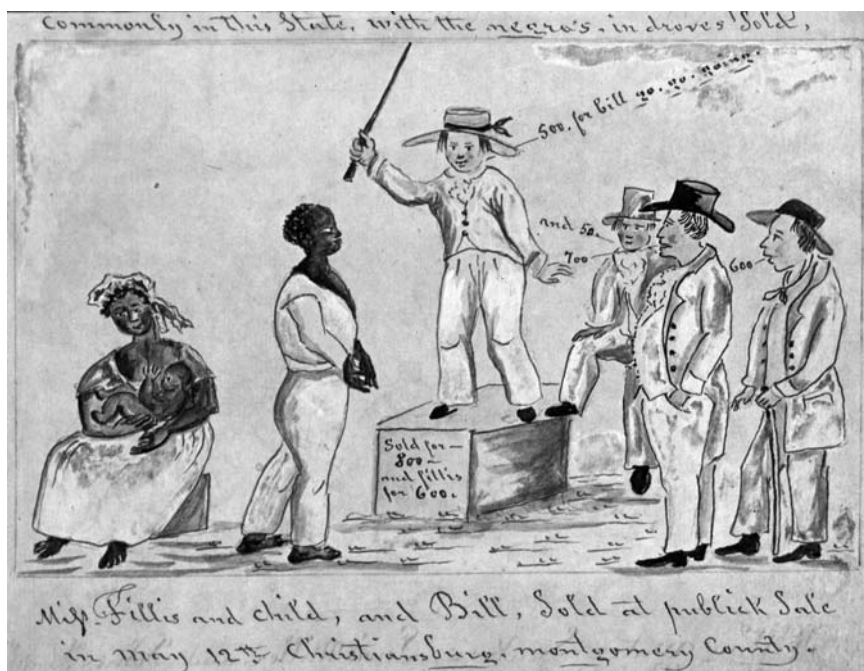 Commonly in this State, with the negro's, in droves Sold,
500. for bill go. go. going.
and 50.
700
600
Sold for—
800—
and fillis
for 600.
Miss Fillis and child, and Bill, Sold at publick Sale
in May 12th, Christiansburg, montgomery County.